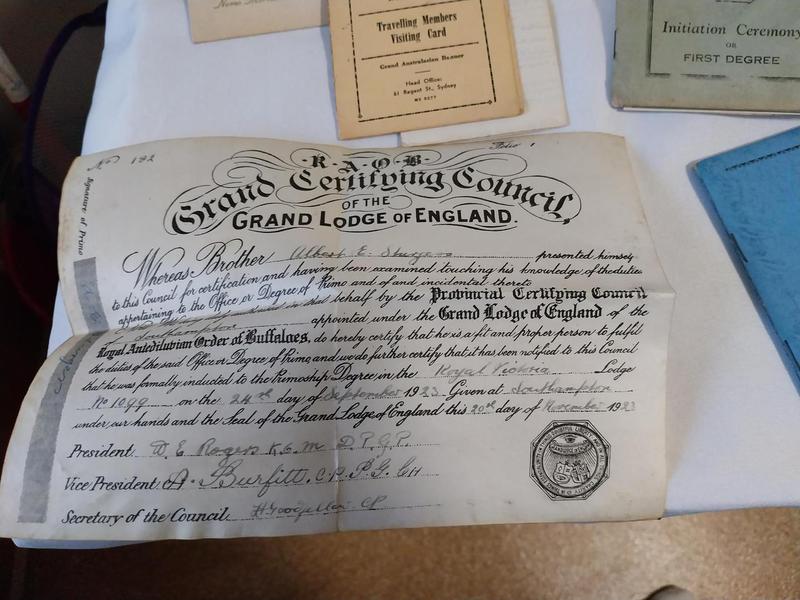 Travelling Members
Visiting Card
Grand Australasian Banner
Head Office:
61 Regent St., Sydney
Initiation Ceremony
OR
FIRST DEGREE
No 192
Folio 1
Signature of Primo
R.A.O.B.
Grand Certifying Council,
OF THE
GRAND LODGE OF ENGLAND.
Whereas Brother Albert E. Sturgess presented himself
to this Council for certification, and having been examined touching his knowledge, of the duties
appertaining to the Office or Degree of Primo and of and incidental thereto
behalf by the Provincial Certifying Council
Southampton appointed under the Grand Lodge of England of the
Royal Antediluvian Order of Buffaloes, do hereby certify that he is a fit and proper person to fulfil
the duties of the said Office or Degree of Primo and we do further certify that it has been notified to this Council
that he was formally inducted to the Primoship Degree, in the Royal Victoria Lodge
No 1099 on the 24th day of September 1923 Given at Southampton
under our hands and the Seal of the Grand Lodge of England this 20th day of November 1923
President W. E. Rogers K.O.M D.P.G.P.
Vice President A. Burfitt, C.P. P.G. CH
Secretary of the Council. CP